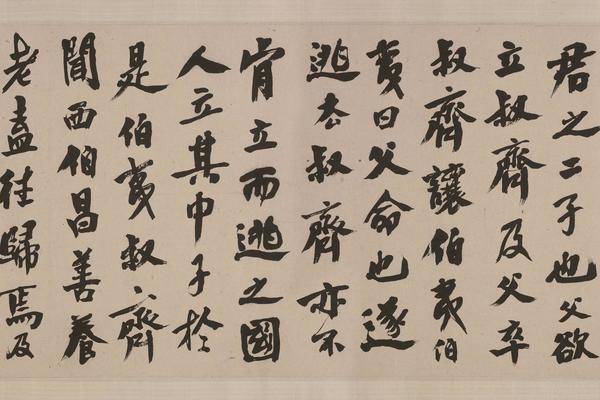 君之二子也父欲
立叔齊及父卒
叔齊讓伯夷伯
夷曰父命也遂
逃去叔齊亦不
肯立而逃之國
人立其中子於
是伯夷叔齊
聞西伯昌善養
老盍往歸焉及